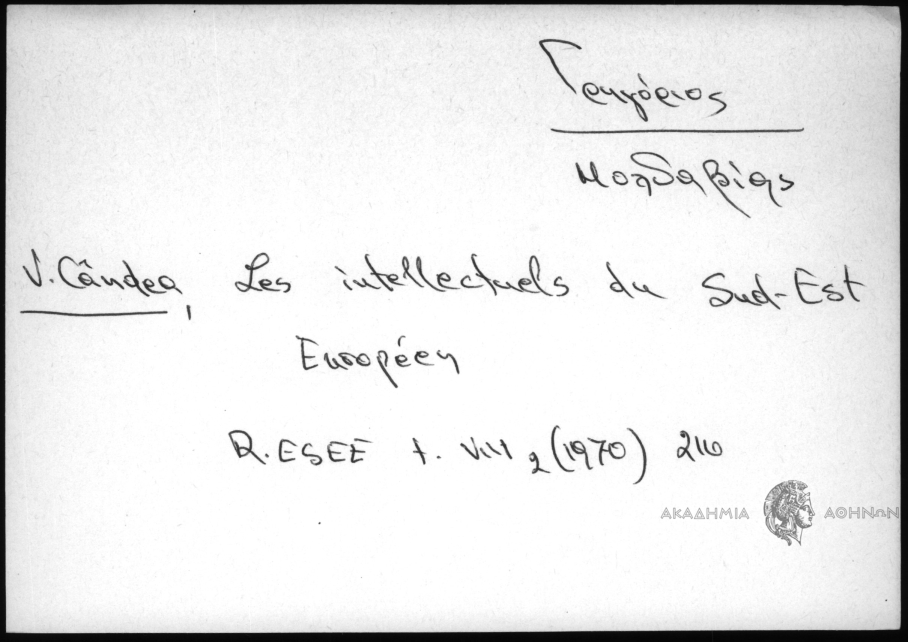 Γρηγόριος
Μολδαβίας
V. Cândea, Les intellectuels du Sud-Est
Européen
R.ESEE t. VIII 2 (1970)
ΑΚΑΔΗΜΙΑ ΑΘΗΝΩΝ